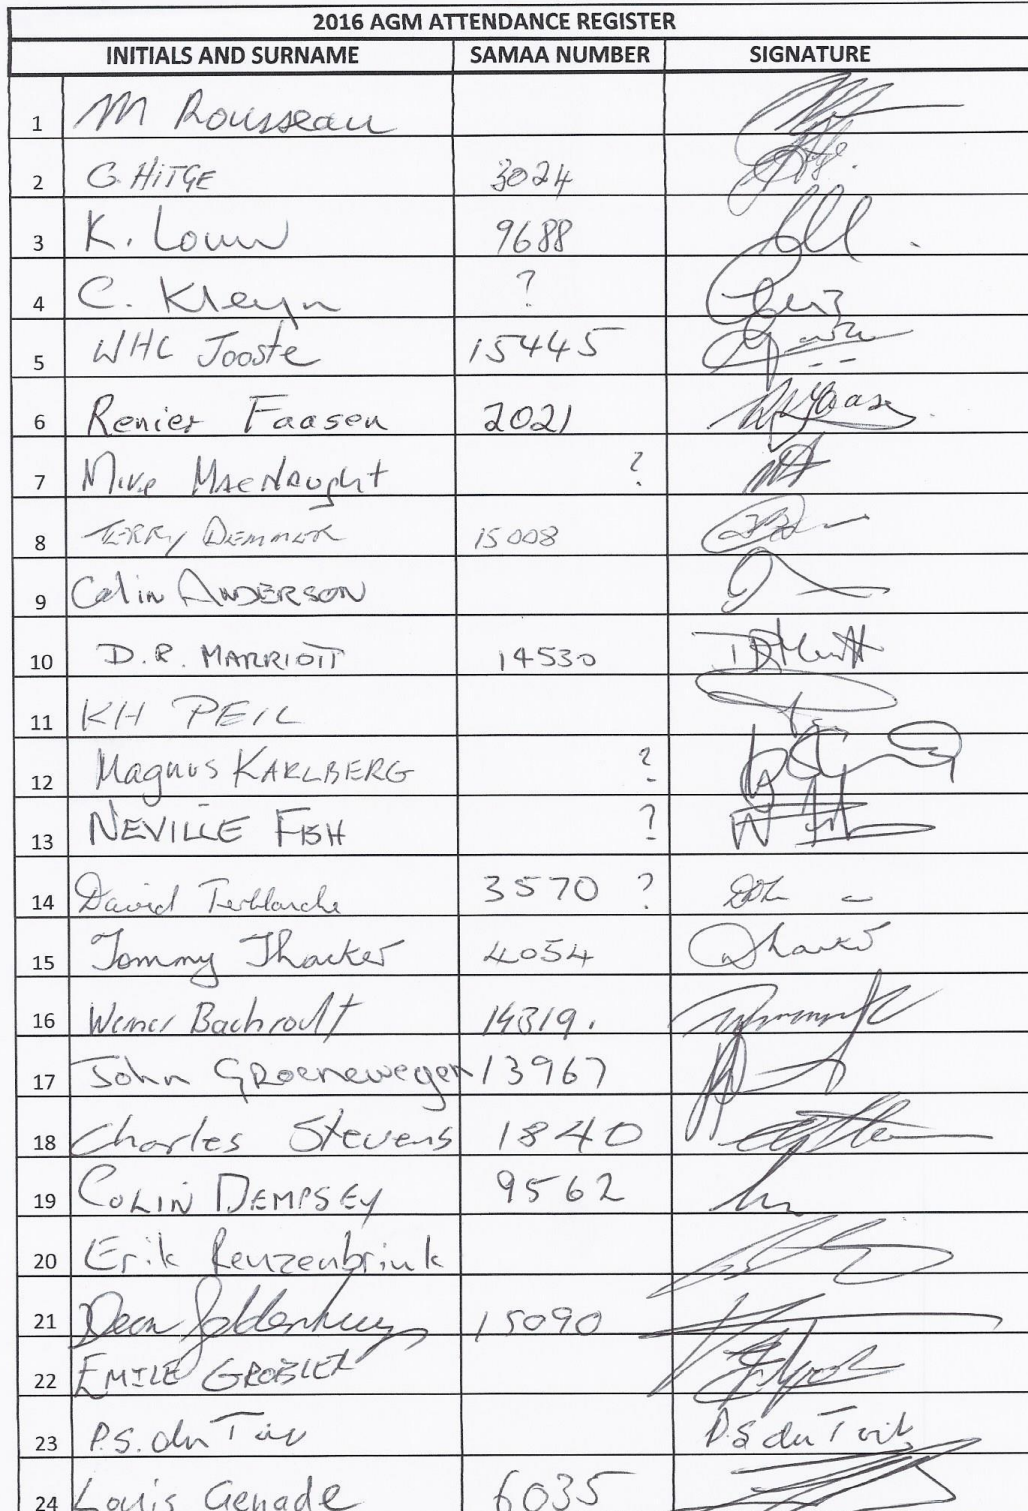 2016 AGM ATTENDANCE REGISTER
INITIALS AND SURNAME SAMAA NUMBER SIGNATURE
1 M Rousseau
2 G. HiTGE 3024
3 K. Louw 9688
4 C. Kleyn ?
5 WHC Jooste 15445
6 Renier Faasen 2021
7 Mike MacNaught ?
8 TERRY DEMMER 15008
9 Colin ANDERSON
10 D.R. MARRIOTT 14530
11 KH PEIL
12 Magnus KARLBERG ?
13 NEVILLE FISH ?
14 David Terblanche 3570 ?
15 Tommy Thacker 4054
16 Werner Bachrodt 14319.
17 John GRoenewegen 13967
18 Charles Stevens 1840
19 COLIN DEMPSEY 9562
20 Erik Renzenbrink
21 Dean Soldenhuys 15090
22 EMILE GROBLER
23 P.S. du Toit P.S du Toit
24 Louis Genade 6035